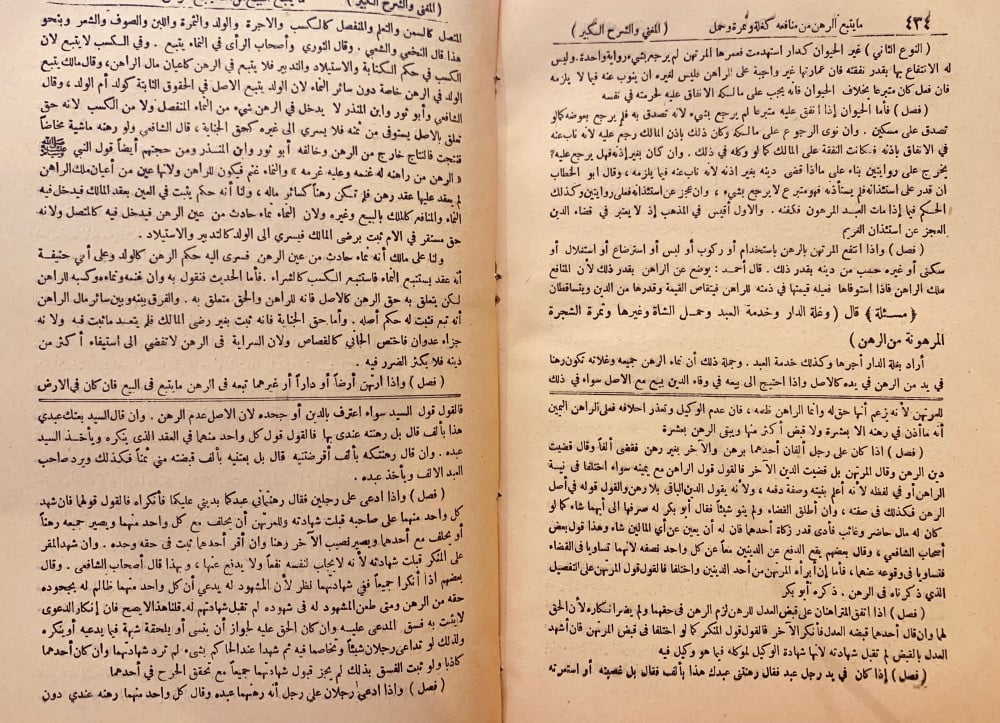 ٤٣٤ مايتبع الرهن من منافعه كغلة وثمرة وحمل ( المغني والشرح الكبير )
( النوع الثاني ) غير الحيوان كدار استهدمت فعمرها المرتهن لم يرجع بشيء رواية واحدة . وليس
له الانتفاع بها بقدر نفقته فان عمارتها غير واجبة على الراهن فليس لغيره ان ينوب عنه فيما لا يلزمه
فان فعل كان متبرعا بخلاف الحيوان فانه يجب على مالكه الانفاق عليه لحرمته في نفسه
( فصل ) فأما الحيوان إذا أنفق عليه متبرعا لم يرجع بشيء لانه تصدق به فلم يرجع بعوضه كما لو
تصدق على مسكين . وان نوى الرجوع على مالكه وكان ذلك باذن المالك رجع عليه لانه ناب عنه
في الانفاق باذنه فكانت النفقة على المالك كما لو وكله في ذلك . وان كان بغير إذنه فهل يرجع عليه ؟
يخرج على روايتين بناء على ما اذا قضى دينه بغير اذنه لانه ناب عنه فيما يلزمه ، وقال أبو الخطاب
ان قدر على استئذانه فلم يستأذنه فهو متبرع لا يرجع بشيء ، وان عجز عن استئذانه فعلى روايتين وكذلك
الحكم فيما إذا مات العبد المرهون فكفنه . والاول أقيس في المذهب إذ لا يعتبر في قضاء الدين
العجز عن استئذان الغريم
( فصل ) وإذا انتفع المرتهن بالرهن باستخدام أو ركوب أو لبس أو استرضاع أو استغلال أو
سكنى أو غيره حسب من دينه بقدر ذلك . قال أحمد : يوضع عن الراهن بقدر ذلك لأن المنافع
ملك الراهن فاذا استوفاها فعليه قيمتها في ذمته للراهن فيتقاص القيمة وقدرها من الدين ويتساقطان
﴿ مسئلة ﴾ قال ( وغلة الدار وخدمة العبد وحمل الشاة وغيرها وثمرة الشجرة
المرهونة من الرهن )
أراد بغلة الدار أجرها وكذلك خدمة العبد . وجملة ذلك أن نماء الرهن جميعه وغلاته تكون رهنا
في يد من الرهن في يده كالاصل واذا احتيج الى بيعه في وفاء الدين بيع مع الاصل سواء في ذلك
للمرتهن لأنه يزعم أنها حق له وانما الراهن ظلمه ، فان عدم الوكيل وتعذر احلافه فعلى الراهن اليمين
أنه ما أذن في رهنه الا بعشرة ولا قبض أكثر منها وبقي الرهن بعشرة
( فصل ) اذا كان على رجل ألفان أحدهما برهن والآخر بغير رهن فقضى ألفا وقال قضيت
دين الرهن وقال المرتهن بل قضيت الدين الآخر فالقول قول الراهن مع يمينه سواء اختلفا في نية
الراهن أو في لفظه لأنه أعلم بنيته وصفة دفعه ، ولأنه يقول الدين الباقي بلا رهن والقول قوله في أصل
الرهن فكذلك في صفته ، وان أطلق القضاء ولم ينو شيئا فقال أبو بكر له صرفها الى أيهما شاء كما لو
كان له مال حاضر وغائب فأدى قدر زكاة أحدهما فان له أن يعين عن أي المالين شاء وهذا قول بعض
أصحاب الشافعي ، وقال بعضهم يقع الدفع عن الدينين معا عن كل واحد نصفه لأنهما تساويا في القضاء
فتساويا في وقوعه عنهما ، فأما إن أبرأه المرتهن من أحد الدينين واختلفا فالقول قول المرتهن على التفصيل
الذي ذكرناه في الرهن . ذكره أبو بكر
( فصل ) اذا اتفق المتراهنان على قبض العدل للرهن لزم الرهن في حقهما ولم يضر انكاره لأن الحق
لهما وان قال أحدهما قبضه العدل فأنكر الآخر فالقول قول المنكر كما لو اختلفا في قبض المرتهن فان شهد
العدل بالقبض لم تقبل شهادته لأنها شهادة الوكيل لموكله فيما هو وكيل فيه
( فصل ) إذا كان في يد رجل عبد فقال رهنتني عبدك هذا بألف فقال بل غصبته أو استعرته
( المغني والشرح الكبير )
المتصل كالسمن والتعلم والمنفصل كالكسب والاجرة والولد والثمرة واللبن والصوف والشعر وبنحو
هذا قال النخعي والشعبي . وقال الثوري وأصحاب الرأي في النماء يتبع . وفي الكسب لا يتبع لان
الكسب في حكم الكتابة والاستيلاد والتدبير فلا يتبع في الرهن كاعيان مال الراهن ، وقال مالك يتبع
الولد في الرهن خاصة دون سائر النماء لان الولد يتبع الاصل في الحقوق الثابتة كولد أم الولد ، وقال
الشافعي وأبو ثور وابن المنذر لا يدخل في الرهن شيء من النماء المنفصل ولا من الكسب لانه حق
تعلق بالاصل يستوفى من ثمنه فلا يسري الى غيره كحق الجناية ، قال الشافعي ولو رهنه ماشية مخاضا
فنتجت فالنتاج خارج من الرهن وخالفه أبو ثور وابن المنذر ومن حجتهم أيضا قول النبي ﷺ
« الرهن من راهنه له غنمه وعليه غرمه » والنماء غنم فيكون للراهن ولانها عين من أعيان ملك الراهن
لم يعقد عليها عقد رهن فلم تكن رهنا كسائر ماله ، ولنا أنه حكم يثبت في العين بعقد المالك فيدخل فيه
النماء والمنافع كالملك بالبيع وغيره ولان النماء نماء حادث من عين الرهن فيدخل فيه كالمتصل ولانه
حق مستقر في الام ثبت برضى المالك فيسري الى الولد كالتدبير والاستيلاد .
ولنا على مالك أنه نماء حادث من عين الرهن فسرى اليه حكم الرهن كالولد وعلى أبي حنيفة
أنه عقد يستتبع النماء فاستتبع الكسب كالشراء . فأما الحديث فنقول به وان غنمه ونماءه وكسبه للراهن
لكن يتعلق به حق الرهن كالاصل فانه للراهن والحق متعلق به . والفرق بينه وبين سائر مال الراهن
أنه تبع فثبت له حكم أصله . وأما حق الجناية فانه ثبت بغير رضى المالك فلم يتعد ما ثبت فيه ولانه
جزاء عدوان فاختص الجاني كالقصاص ولان السراية في الرهن لا تفضي الى استيفاء أكثر من
دينه فلا يكثر الضرر فيه
( فصل ) واذا ارتهن أرضا أو دارا أو غيرهما تبعه في الرهن مايتبع في البيع فان كان في الارض
فالقول قول السيد سواء اعترف بالدين أو جحده لان الاصل عدم الرهن . وان قال السيد بعتك عبدي
هذا بألف قال بل رهنته عندي بها فالقول قول كل واحد منهما في العقد الذي ينكره ويأخذ السيد
عبده . وان قال رهنتكه بألف أقرضتنيه قال بل بعتنيه بألف قبضته مني ثمنا فكذلك ويرد صاحب
العبد الالف ويأخذ عبده .
( فصل ) واذا ادعى على رجلين فقال رهنتماني عبدكما بديني عليكما فأنكراه فالقول قولهما فان شهد
كل واحد منهما على صاحبه قبلت شهادته وللمرتهن أن يحلف مع كل واحد منهما ويصير جميعه رهنا
أو يحلف مع أحدهما ويصير نصيب الآخر رهنا وان أقر أحدهما ثبت في حقه وحده . وان شهد المقر
على المنكر قبلت شهادته لأنه لا يجلب لنفسه نفعا ولا يدفع عنها ، وبهذا قال أصحاب الشافعي . وقال
بعضهم اذا أنكرا جميعا ففي شهادتهما نظر لأن المشهود له يدعي أن كل واحد منهما ظالم له بجحوده
حقه من الرهن ومتى طعن المشهود له في شهوده لم تقبل شهادتهم له . قلنا هذا لا يصح فان إنكار الدعوى
لا يثبت به فسق المدعى عليه وان كان الحق عليه لجواز أن ينسى أو يلحقه شبهة فيما يدعيه أو ينكره
ولذلك لو تداعى رجلان شيئا وتخاصما فيه ثم شهدا عند الحاكم بشيء لم ترد شهادتهما وان كان أحدهما
كاذبا ولو ثبت الفسق بذلك لم يجز قبول شهادتهما جميعا مع تحقق الجرح في أحدهما
( فصل ) واذا ادعى رجلان على رجل أنه رهنهما عبده وقال كل واحد منهما رهنه عندي دون